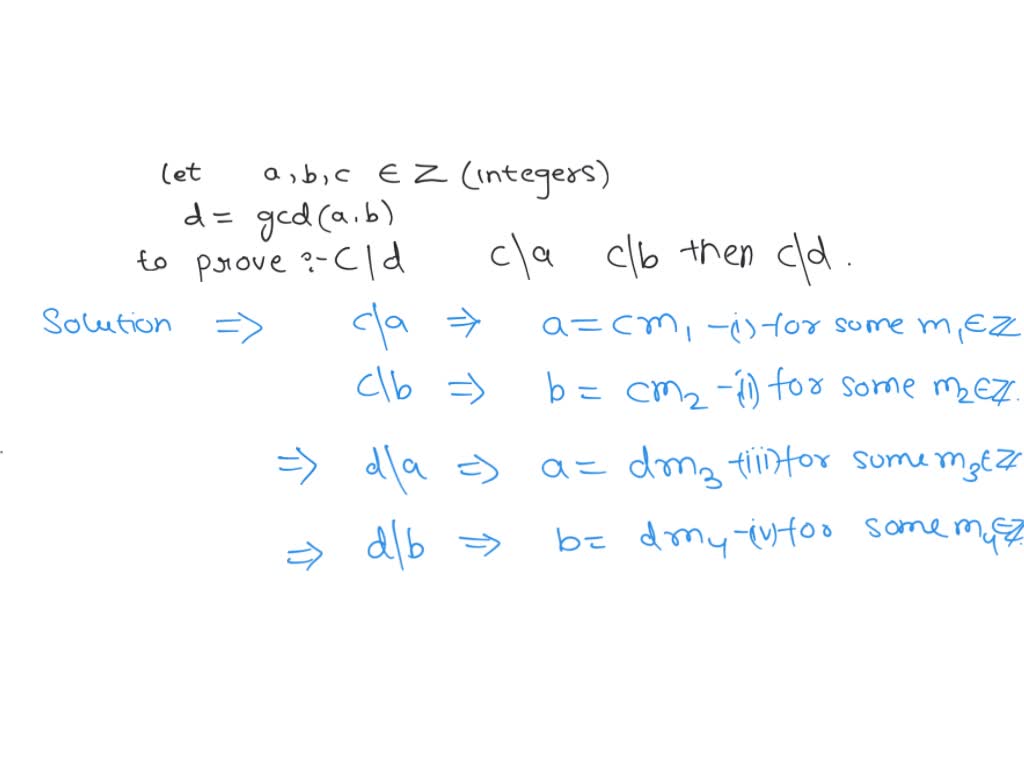 let a,b,c ∈ Z (integers)
d = gcd(a,b)
to prove ?- C|d c|a c|b then c|d.
Solution ⇒ c|a ⇒ a = cm₁ -(i) -for some m₁∈Z
c|b ⇒ b = cm₂ -(i) for some m₂∈Z.
⇒ d|a ⇒ a = dm₃ -(iii) for some m₃∈Z
⇒ d|b ⇒ b = dm₄ -(iv) -for some m₄∈Z.